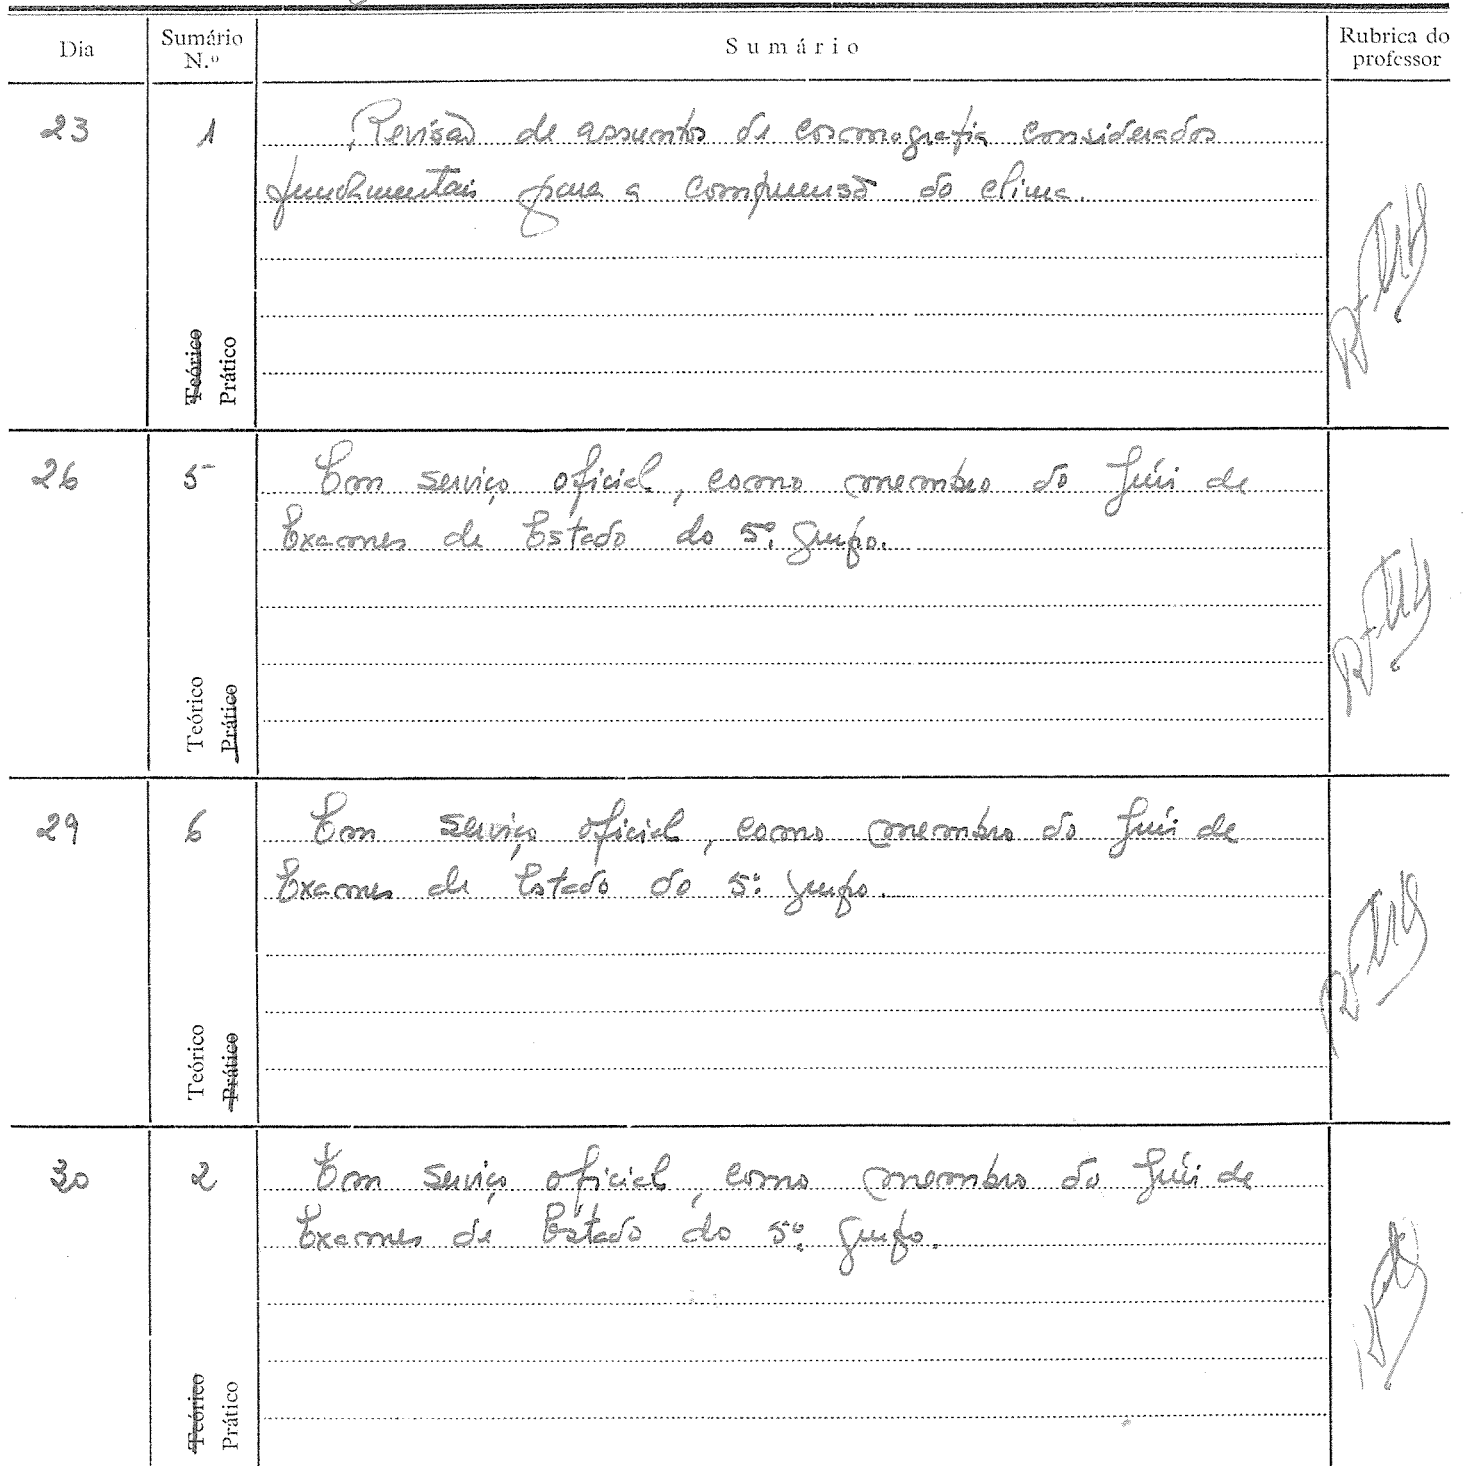 Dia
Sumário N.º
Sumário
Rubrica do professor
23
1
Revisão de assuntos de cosmografia considerados
fundamentais para a compreensão do clima.
Teórico
Prático
26
5
Em serviço oficial, como membro do Júri de
Exames de Estado do 5º grupo.
Teórico
Prático
29
6
Em serviço oficial, como membro do Júri de
Exames de Estado do 5º grupo.
Teórico
Prático
30
2
Em serviço oficial, como membro do Júri de
Exames de Estado do 5º grupo.
Teórico
Prático